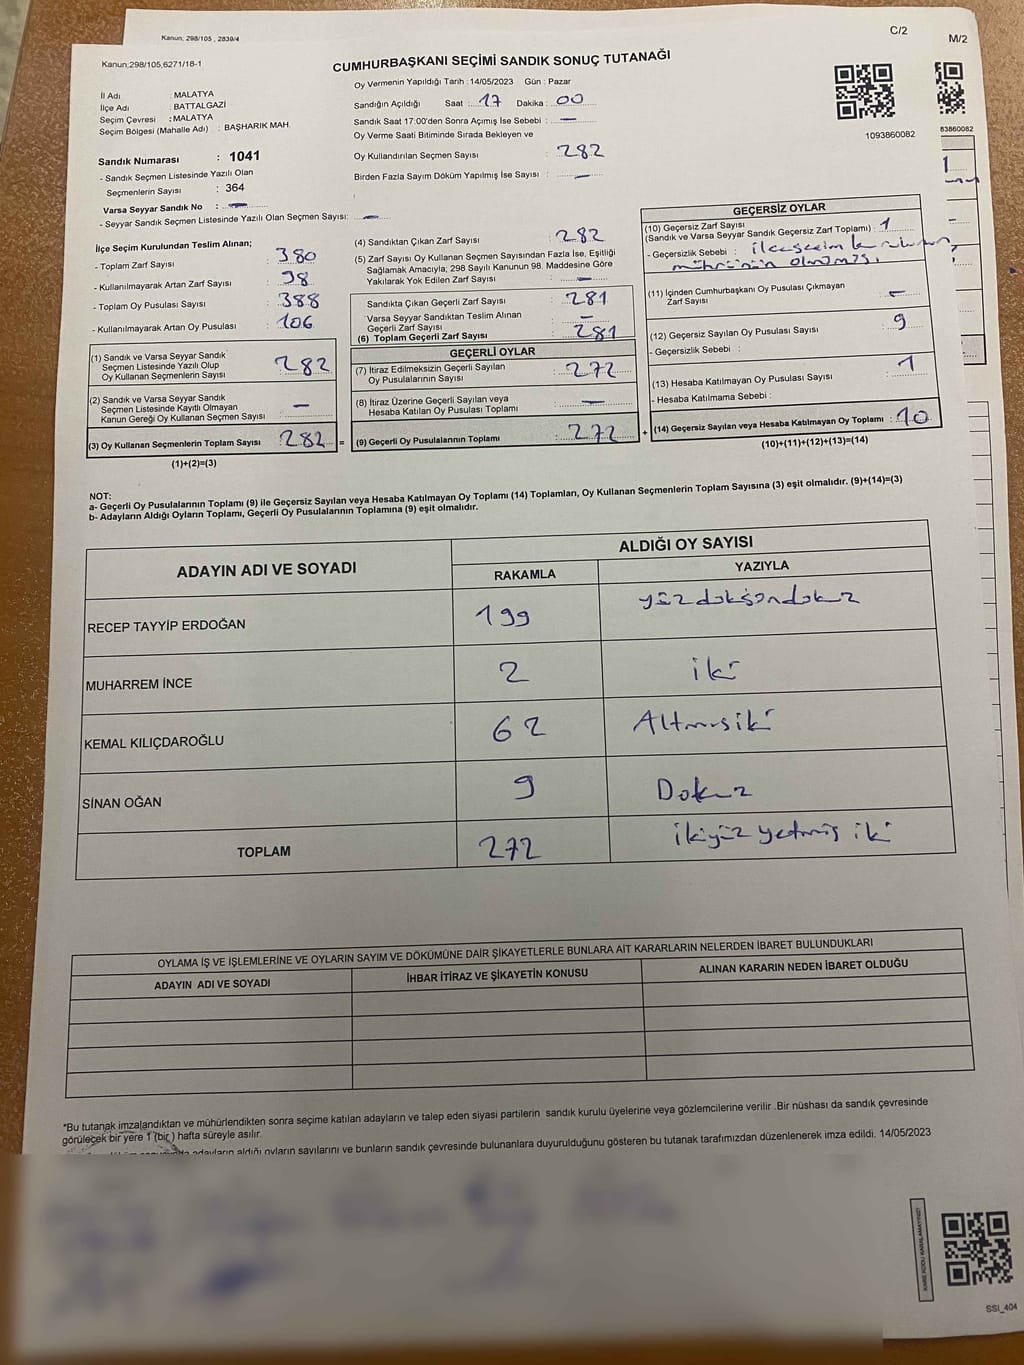 Kanun; 298/105 , 2839/4
C/2
M/2
Kanun;298/105,6271/16-1
CUMHURBAŞKANI SEÇİMİ SANDIK SONUÇ TUTANAĞI
İl Adı : MALATYA
İlçe Adı : BATTALGAZİ
Seçim Çevresi : MALATYA
Seçim Bölgesi (Mahalle Adı) : BAŞHARIK MAH.
Oy Vermenin Yapıldığı Tarih :14/05/2023 Gün : Pazar
Sandığın Açıldığı Saat : 17 Dakika : 00
Sandık Saat 17:00'den Sonra Açımış İse Sebebi : —
Oy Verme Saati Bitiminde Sırada Bekleyen ve
Oy Kullandırılan Seçmen Sayısı : 282
Birden Fazla Sayım Döküm Yapılmış İse Sayısı : —
1093860082
83860082
Sandık Numarası : 1041
- Sandık Seçmen Listesinde Yazılı Olan
Seçmenlerin Sayısı : 364
Varsa Seyyar Sandık No : —
- Seyyar Sandık Seçmen Listesinde Yazılı Olan Seçmen Sayısı: —
İlçe Seçim Kurulundan Teslim Alınan;
- Toplam Zarf Sayısı : 380
- Kullanılmayarak Artan Zarf Sayısı : 98
- Toplam Oy Pusulası Sayısı : 388
- Kullanılmayarak Artan Oy Pusulası : 106
(1) Sandık ve Varsa Seyyar Sandık
Seçmen Listesinde Yazılı Olup
Oy Kullanan Seçmenlerin Sayısı : 282
(2) Sandık ve Varsa Seyyar Sandık
Seçmen Listesinde Kayıtlı Olmayan
Kanun Gereği Oy Kullanan Seçmen Sayısı : —
(3) Oy Kullanan Seçmenlerin Toplam Sayısı : 282 =
(1)+(2)=(3)
(4) Sandıktan Çıkan Zarf Sayısı : 282
(5) Zarf Sayısı Oy Kullanan Seçmen Sayısından Fazla İse, Eşitliği
Sağlamak Amacıyla; 298 Sayılı Kanunun 98. Maddesine Göre
Yakılarak Yok Edilen Zarf Sayısı : —
Sandıkta Çıkan Geçerli Zarf Sayısı : 281
Varsa Seyyar Sandıktan Teslim Alınan
Geçerli Zarf Sayısı : —
(6) Toplam Geçerli Zarf Sayısı : 281
GEÇERLİ OYLAR
(7) İtiraz Edilmeksizin Geçerli Sayılan
Oy Pusulalarının Sayısı : 272
(8) İtiraz Üzerine Geçerli Sayılan veya
Hesaba Katılan Oy Pusulası Toplamı : —
(9) Geçerli Oy Pusulalarının Toplamı : 272 +
GEÇERSİZ OYLAR
(10) Geçersiz Zarf Sayısı
(Sandık ve Varsa Seyyar Sandık Geçersiz Zarf Toplamı) : 1
- Geçersizlik Sebebi : ilçe seçim kurulunun
mührünün olmaması
(11) İçinden Cumhurbaşkanı Oy Pusulası Çıkmayan
Zarf Sayısı : —
(12) Geçersiz Sayılan Oy Pusulası Sayısı : 9
- Geçersizlik Sebebi :
(13) Hesaba Katılmayan Oy Pusulası Sayısı : 1
- Hesaba Katılmama Sebebi :
(14) Geçersiz Sayılan veya Hesaba Katılmayan Oy Toplamı : 10
(10)+(11)+(12)+(13)=(14)
NOT:
a- Geçerli Oy Pusulalarının Toplamı (9) ile Geçersiz Sayılan veya Hesaba Katılmayan Oy Toplamı (14) Toplamları, Oy Kullanan Seçmenlerin Toplam Sayısına (3) eşit olmalıdır. (9)+(14)=(3)
b- Adayların Aldığı Oyların Toplamı, Geçerli Oy Pusulalarının Toplamına (9) eşit olmalıdır.
ADAYIN ADI VE SOYADI
ALDIĞI OY SAYISI
RAKAMLA YAZIYLA
RECEP TAYYİP ERDOĞAN 199 yüzdoksandokuz
MUHARREM İNCE 2 iki
KEMAL KILIÇDAROĞLU 62 Altmışiki
SİNAN OĞAN 9 Dokuz
TOPLAM 272 ikiyüz yetmiş iki
OYLAMA İŞ VE İŞLEMLERİNE VE OYLARIN SAYIM VE DÖKÜMÜNE DAİR ŞİKAYETLERLE BUNLARA AİT KARARLARIN NELERDEN İBARET BULUNDUKLARI
ADAYIN ADI VE SOYADI İHBAR İTİRAZ VE ŞİKAYETİN KONUSU ALINAN KARARIN NEDEN İBARET OLDUĞU
*Bu tutanak imzalandıktan ve mühürlendikten sonra seçime katılan adayların ve talep eden siyasi partilerin sandık kurulu üyelerine veya gözlemcilerine verilir .Bir nüshası da sandık çevresinde
görülecek bir yere 1 (bir ) hafta süreyle asılır.
adayların aldığı oyların sayılarını ve bunların sandık çevresinde bulunanlara duyurulduğunu gösteren bu tutanak tarafımızdan düzenlenerek imza edildi. 14/05/2023
KARE KODU KARALAMAYINIZ!
SSI_404